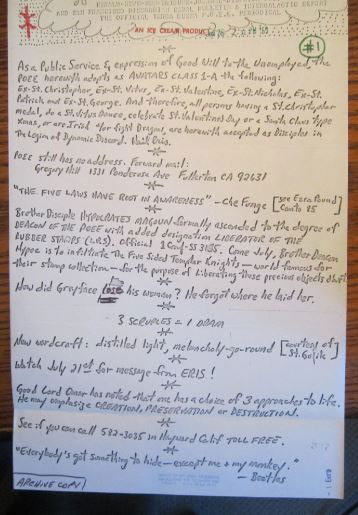 AN ICE CREAM PRODUCT
#1
As a Public Service & expression of Good Will to the Unemployed, the
POEE herewith adopts as AVATARS CLASS 1-A the following:
Ex-St. Christopher, Ex-St. Vitus, Ex-St. Valentine, Ex-St. Nicholas, Ex-St.
Patrick and Ex-St. George. And therefore, all persons having a St. Christopher
medal, do a St. Vitus Dance, celebrate St. Valentines Day or a Santa Claus type
Xmas, or are Irish or fight Dragons, are herewith accepted as Disciples in
The Legion of Dynamic Discord. Hail Eris.
POEE still has no address. Forward mail:
Gregory Hill 1331 Ponderosa Ave Fullerton CA 92631
"THE FIVE LAWS HAVE ROOT IN AWARENESS" - Che Fung [see Ezra Pound Canto 85]
Brother Disciple HYPOCRATES MAGOUN formally ascended to the degree of
DEACON OF THE POEE with added designation LIBERATOR OF THE
RUBBER STAMPS (L.R.S). Official Come July, Brother Deacon
Hypoc is to infiltrate The Five Sided Temple Knights - world famous for
their stamp collection - for the purpose of Liberating those precious objects
How did Greyface lose his woman? He forgot where he laid her.
3 SCRUPLES = 1 DRAM
New wordcraft: distilled light, melancholy-go-round [courtesy of St. Gulik]
Watch July 21st for message from ERIS!
Good Lord Omar has noted that one has a choice of 3 approaches to life.
He may emphasize CREATION, PRESERVATION or DESTRUCTION.
See if you can call 582-3035 in Hayward Calif TOLL FREE.
"Everybody's got something to hide - except me & my monkey."
- Beatles
ARCHIVE COPY